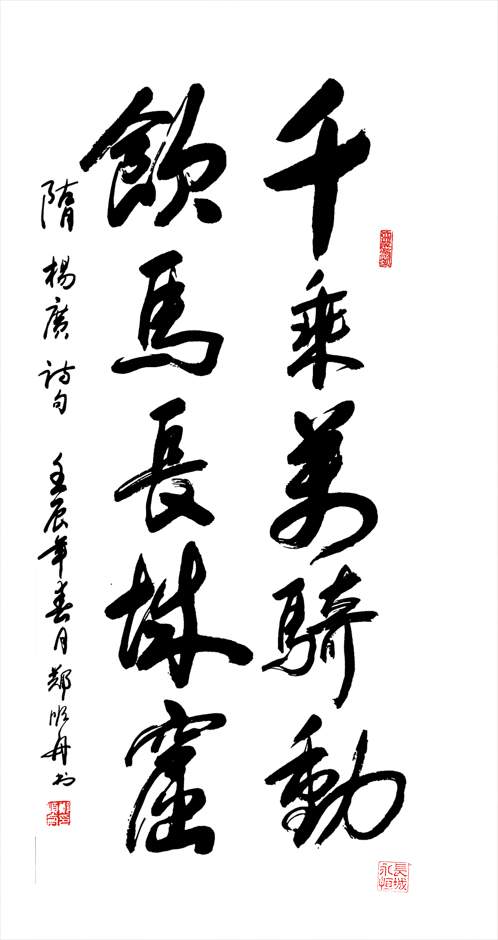 千乘萬騎動
飲馬長城窟
隋 楊廣 詩句 壬辰年春月 鄭
長城永恒